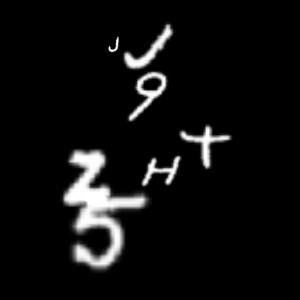 J
J
9
t
H
Z
5